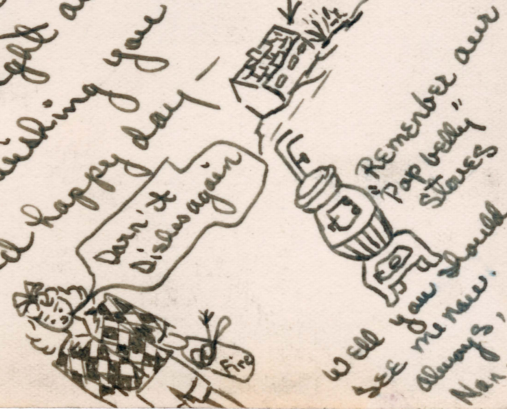 ishing you
happy day
Darn'it
Dishes again
Fire
Remember our
"Pop belly"
Stoves
Well you should
see me now
always,
Nan